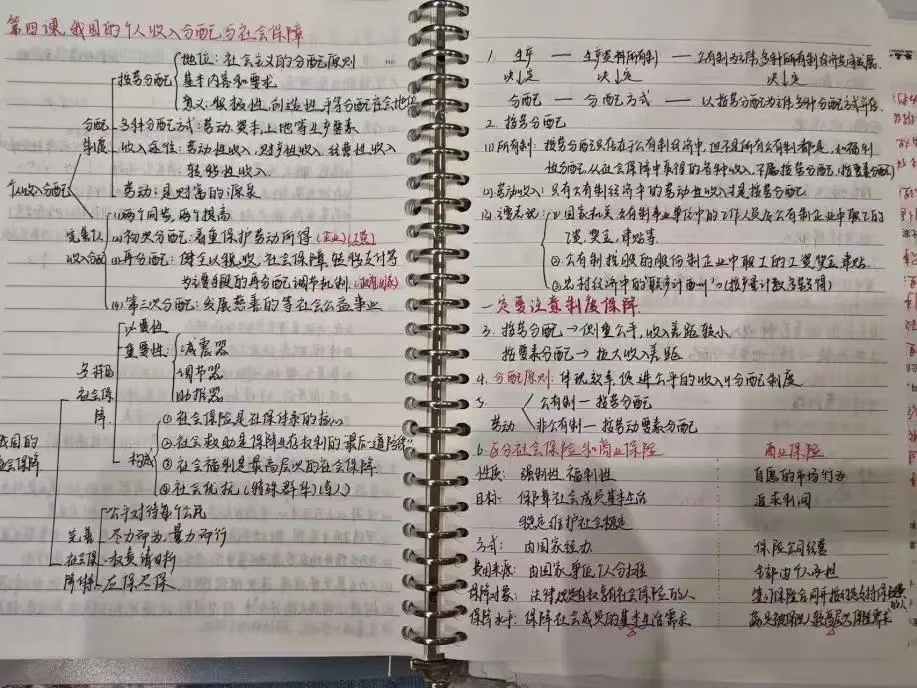 第四课、我国的个人收入分配与社会保障
地位：社会主义的分配原则
按劳分配 基本内容和要求
意义：积极性，创造性，平等分配社会地位
分配 多种分配方式：劳动、资本、土地等生产要素
制度 收入途径：劳动性收入，财产性收入，经营性收入
转移性收入
劳动：是财富的源泉
个人收入分配
(1)两个同步，两个提高
完善 (2)初次分配：着重保护劳动所得
收入分配 (3)再分配：健全以税收，社会保障，转移支付等
为主要手段的再分配调节机制.
(4)第三次分配：发展慈善的等社会公益事业
必要性
重要性：减震器
多样的 调节器
社会保 助推器
障. ①社会保险是社保体系的核心
我国的 ②社会救助是保障生存权利的"最后一道防线"
社会保障 构成 ③社会福利是最高层次的社会保障
④社会优抚(特殊群体)
公平对待每个公民
完善 尽力而为，量力而行
社会保 权责清晰
障体系 应保尽保
1. 生产 — 生产资料所有制 — 公有制为主体，多种所有制经济共同发展.
决定 决定 决定
分配 — 分配方式 — 以按劳分配为主体多种分配方式并存.
2. 按劳分配
(1)所有制：按劳分配只存在于公有制经济中，但不是所有公有制都是，如福利
性分配，从社会保障中获得的各种收入，不属按劳分配
(2)劳动收入：只有公有制经济中的劳动性收入才是按劳分配
①国家机关、公有制事业单位中的工作人员及公有制企业中职工的
工资，奖金，津贴等.
②公有制控股的股份制企业中职工的工资奖金津贴
③农村经济中的
一定要注意制度保障.
3. 按劳分配→侧重公平，收入差距较小
按要素分配→拉大收入差距
4. 分配原则：体现效率，促进公平的收入分配制度
5. 公有制—按劳分配
劳动 非公有制—按劳动要素分配
6. 区分社会保险和商业保险 商业保险
性质：强制性，福利性 自愿的市场行为
目标：保障社会成员基本生活 追求利润
稳定维护社会稳定
方式：由国家经办 保险公司经营
费用来源：由国家单位个人分担 全部由个人承担
保障对象：法律规定有权享社会保险的人
保障水平：保障社会成员的基本生活需求